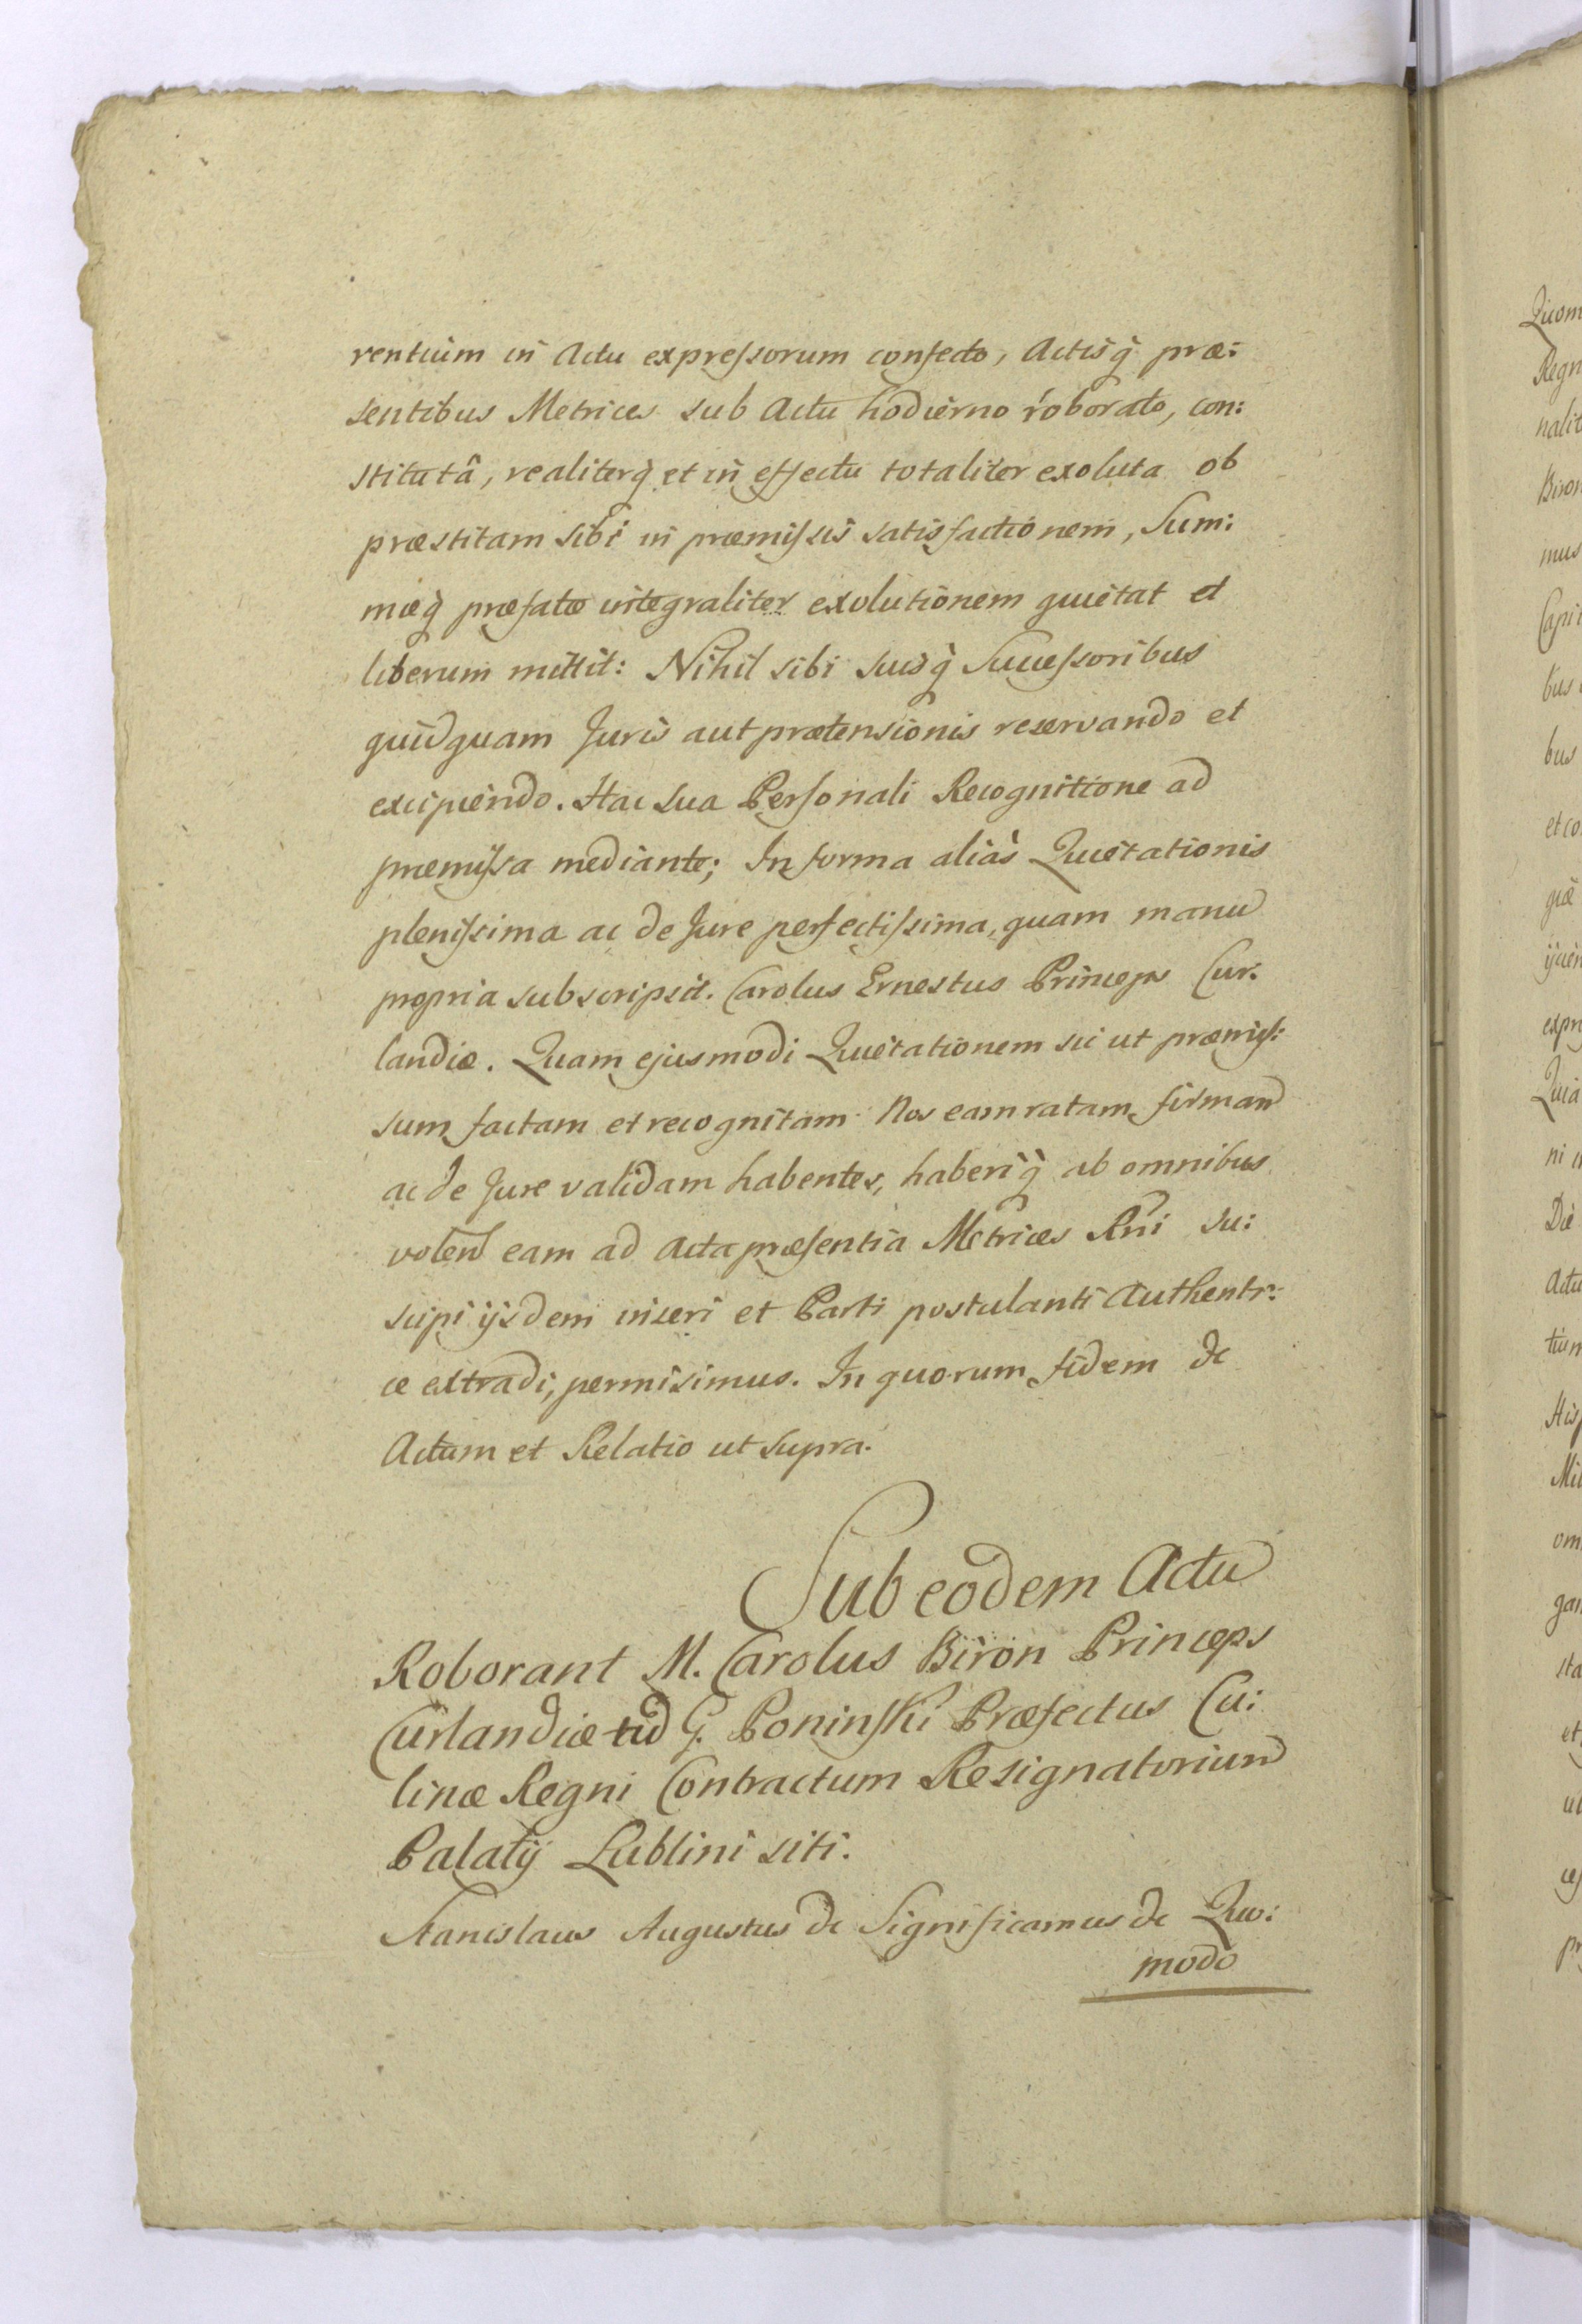 rentium in Actu expressorum confecto, Actisq̃ præ:
sentibus Metrices sub Actu hodierno roborato, con:
stitutâ, realiterq̃ et in effectu totaliter exoluta ob
præstitam sibi in præmissis satisfactionem, Sum:
mæq̃ præfatæ integraliter exolutionem quietat et
liberum mittit: Nihil sibi suisq̃ Successoribus
quidquam Juris aut prætensionis reservando et
excipiendo. Hac sua Personali Recognitione ad
præmissa mediante; In forma aliàs Quietationis
plenissima ac de Jure perfectissima, quam manu
propria subscripsit. Carolus Ernestus Princeps Cur:
landiæ. Quam ejusmodi Quietationem sic ut præmis:
sum factam et recognitam Nos eam ratam firmam
ac de Jure validam habentes, haberiq̃ ab omnibus
volen eam ad Acta præsentia Metrices Rñi su:
scipi ijsdem inseri et Parti postulanti Authenti:
ce extradi, permisimus. In quorum fidem &c
Actum et Relatio ut supra.
Sub eodem Actu
Roborant M. Carolus Biron Princeps
Curlandiæ G. Poninski Præfectus Cu:
linæ Regni Contractum Resignatorium
Palatij Lublini siti.
Stanislaus Augustus &c Significamus &c Quo:
modo
Quom
Regn
nalit
Biron
mus
Capi
bus
bus
et co
giæ
expr
Quia
ni
Die
Actu
tium
His
om
gan
sta
et